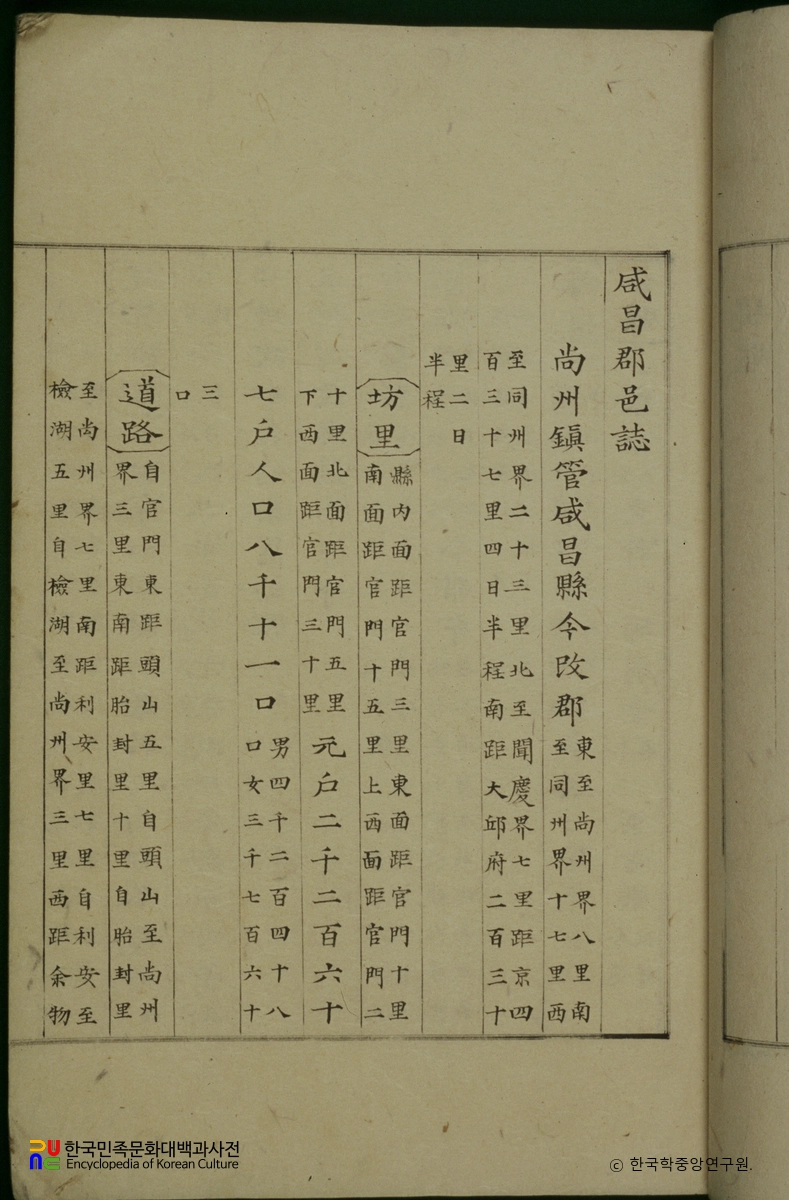 咸昌郡邑誌
尚州鎭管咸昌縣今改郡
東至尚州界八里南
至同州界十七里西
至同州界二十三里北至聞慶界七里距京四
百三十七里四日半程南距大邱府二百三十
里二日
半程
坊里
縣內面距官門三里東面距官門十里
南面距官門十五里上西面距官門二
十里北面距官門五里
下西面距官門三十里
元户二千二百六十
七户人口八千十一口
男四千二百四十八
口女三千七百六十
三
口
道路
自官門東距頭山五里自頭山至尚州
界三里東南距胎封里十里自胎封里
至尚州界七里南距利安里七里自利安至
檢湖五里自檢湖至尚州界三里西距余物
한국민족문화대백과사전
Encyclopedia of Korean Culture
© 한국학중앙연구원.